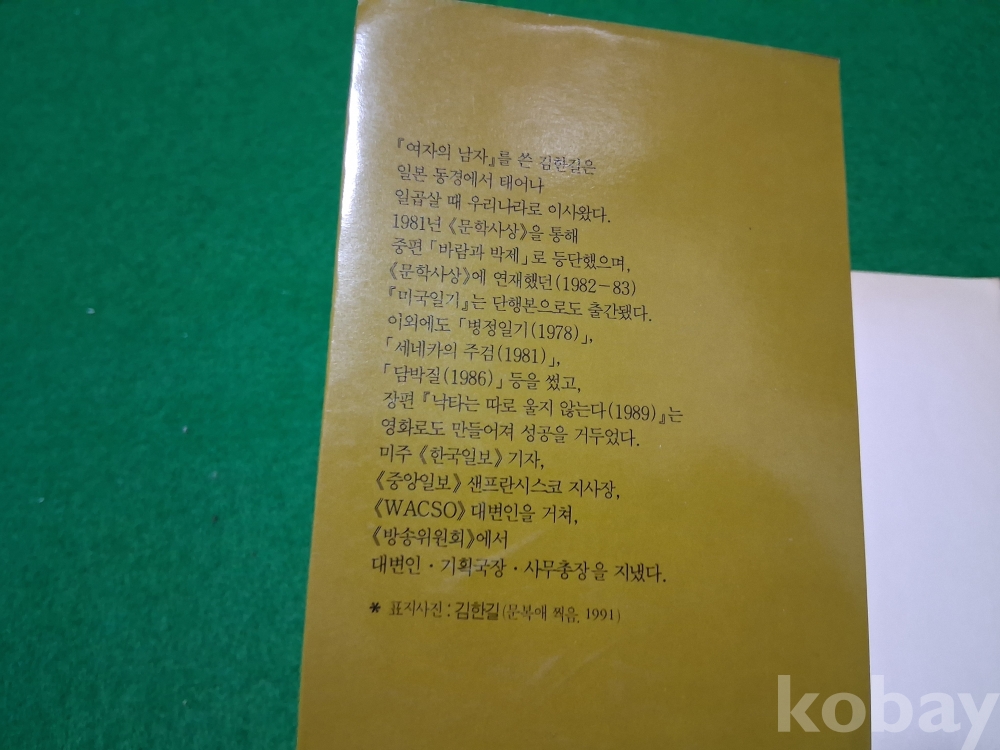 『여자의 남자』를 쓴 김한길은
일본 동경에서 태어나
일곱살 때 우리나라로 이사왔다.
1981년 《문학사상》을 통해
중편 「바람과 박제」로 등단했으며,
《문학사상》에 연재했던(1982－83)
『미국일기』는 단행본으로도 출간됐다.
이외에도 「병정일기(1978)」,
「세네카의 주검(1981)」,
「담박질(1986)」 등을 썼고,
장편 『낙타는 따로 울지 않는다(1989)』는
영화로도 만들어져 성공을 거두었다.
미주 《한국일보》 기자,
《중앙일보》 샌프란시스코 지사장,
《WACSO》 대변인을 거쳐,
《방송위원회》에서
대변인·기획국장·사무총장을 지냈다.
* 표지사진 : 김한길(문복애 찍음, 1991)
kobay